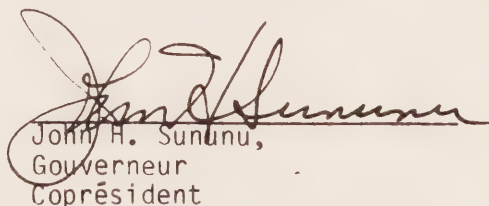 John H. Sununu
John H. Sununu,
Gouverneur
Coprésident